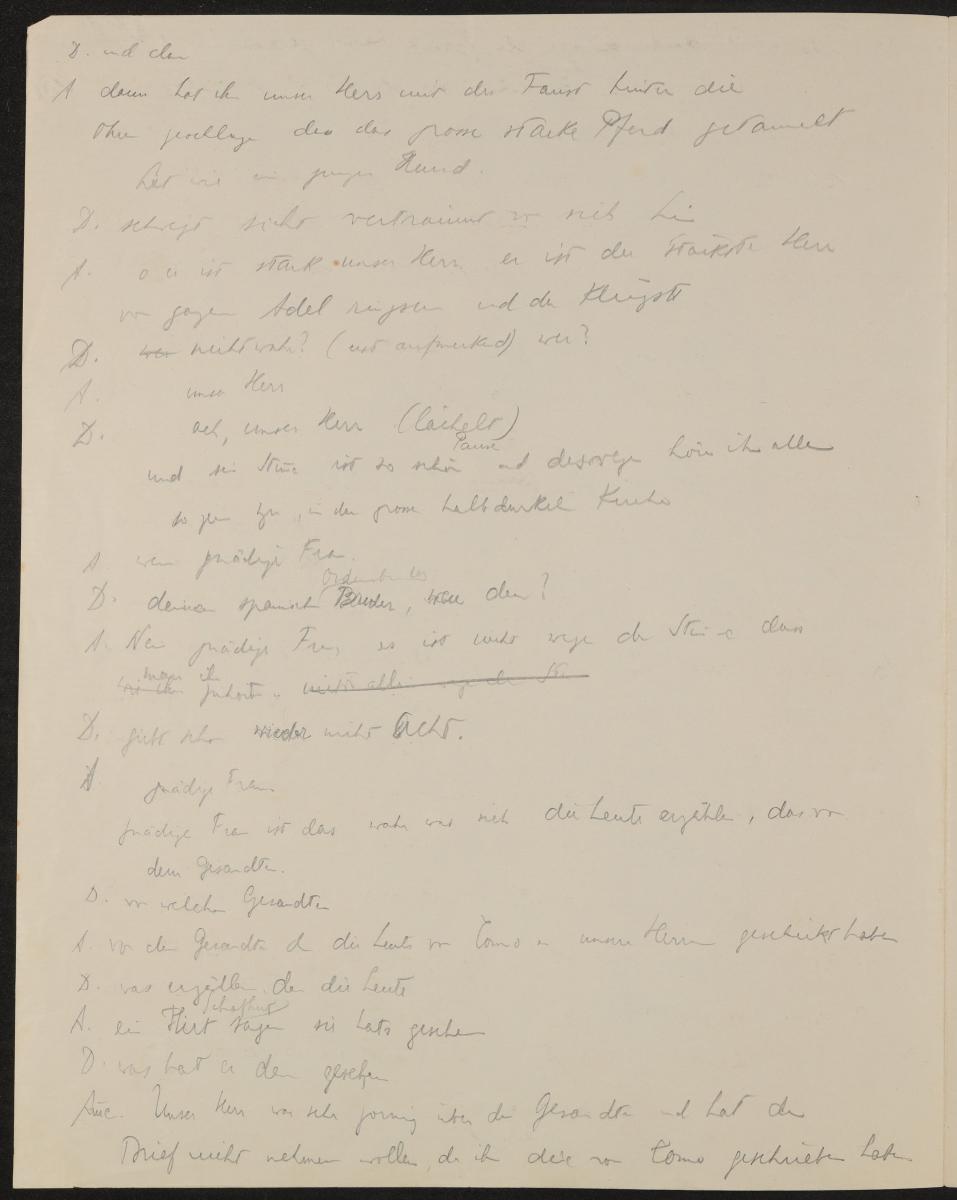 D. und dan
A dann hat ihn unser Herr mit der Faust hinter die
Ohren geschlagen das das grosse starke Pferd getaumelt
hat wie ein junger Hund.
D. schweigt sieht verträumt vor sich hin
A. o er ist stark unser Herr, er ist der stärkste Herr
vom ganzen Adel ringsum und der Klügste
D. nicht wahr? (erst aufmerkend) wer?
A. unser Herr
D. ach, unser Herr (lächelt)
Pause
und seine Stimme ist so schön und deswegen hören ihm alle
so gern zu, in der grossen halbdunkeln Kirche
A. wem gnädige Frau.
D. deinem spanischen Bruder, wem denn?
A. Nein gnädige Frau, es ist nicht wegen der Stimme dass
man ihm zuhört.
D. giebt schon wieder nicht Acht.
A gnädige Frau
gnädige Frau ist das wahr was sich die Leute erzählen, das von
dem Gesandten.
D. von welchem Gesandten
A. von dem Gesandten den die Leute von Como an unseren Herrn geschickt haben
D. was erzählen den die Leute
A. ein Hirt sagen sie hats gesehen
D. was hat er denn gesehen
Anc. Unser Herr war sehr zornig über den Gesandten und hat den
Brief nicht nehmen wollen, den ihm die von Como geschrieben haben